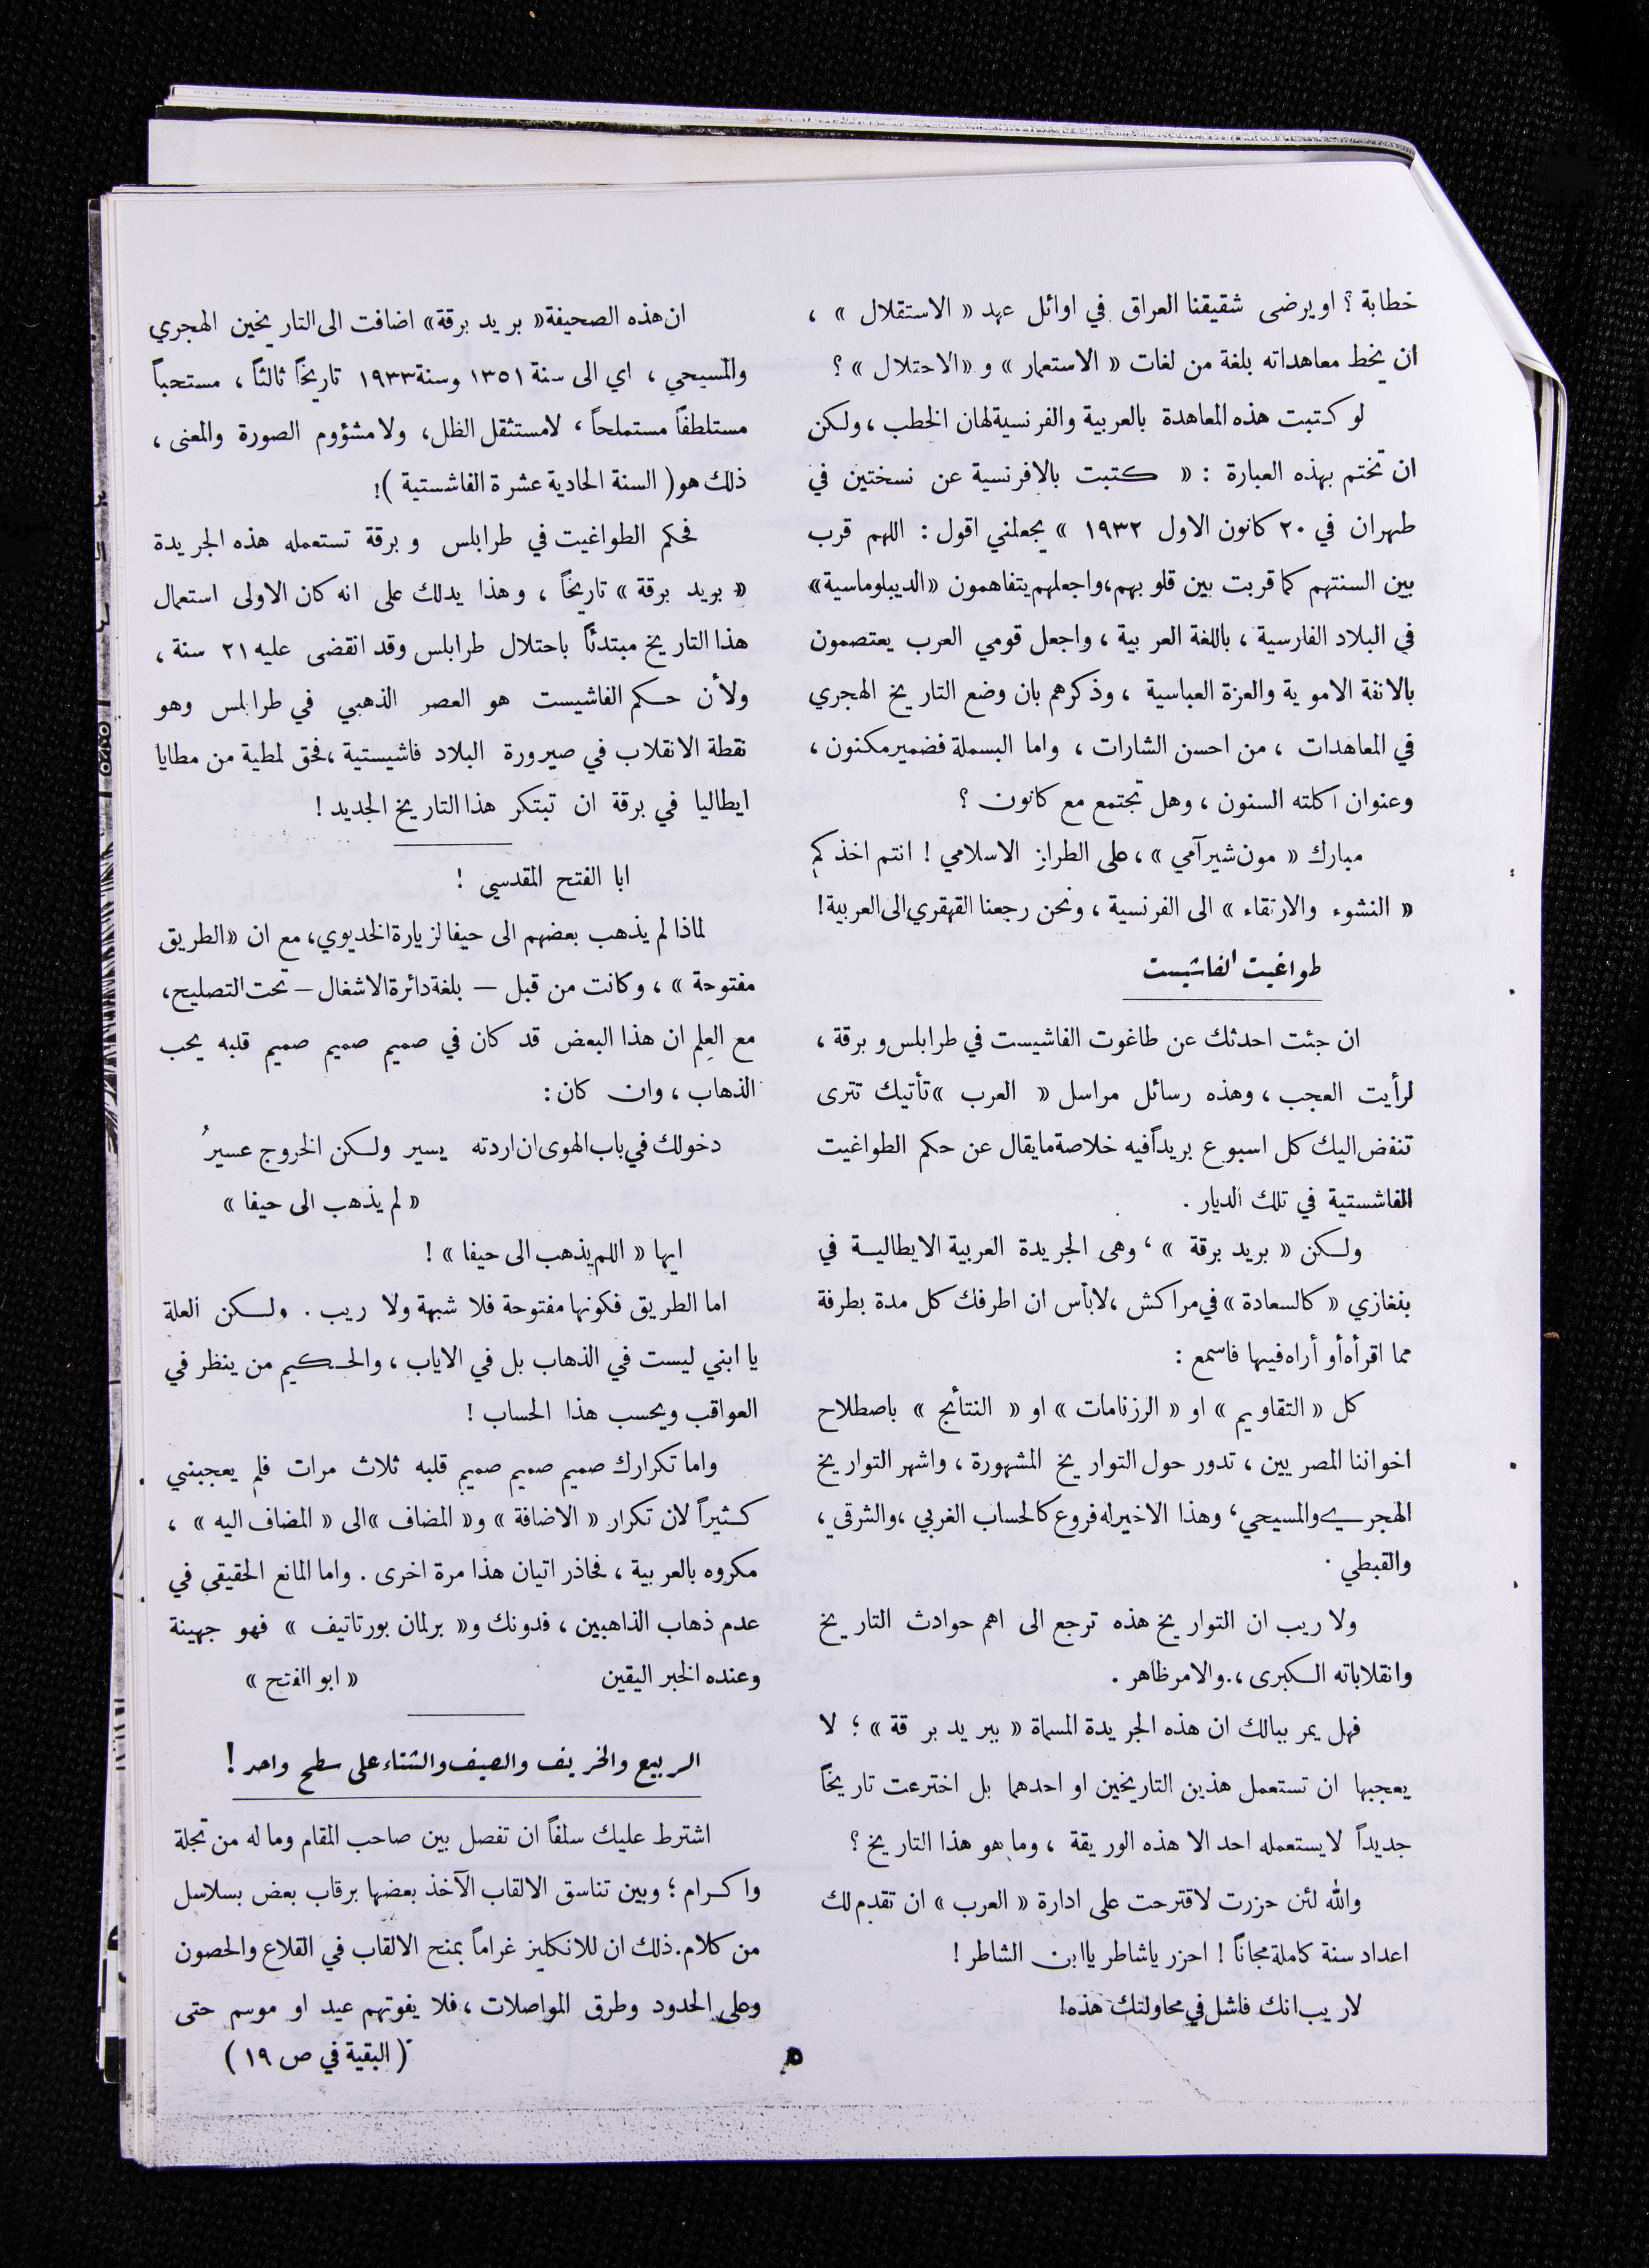 خطابة ؟ او يرضى شقيقنا العراق في اوائل عهد « الاستقلال » ،
ان يخط معاهداته بلغة من لغات « الاستعمار » و « الاحتلال » ؟
لو كتبت هذه المعاهدة بالعربية والفرنسية لهان الخطب ، ولكن
ان تختم بهذه العبارة : « كتبت بالافرنسية عن نسختين في
طهران في ٢٠ كانون الاول ١٩٣٢ » يجعلني اقول : اللهم قرب
بين السنتهم كما قربت بين قلوبهم ، واجعلهم يتفاهمون « الديبلوماسية »
في البلاد الفارسية ، باللغة العربية ، واجعل قومي العرب يعتصمون
بالانفة الاموية والعزة العباسية ، وذكرهم بان وضع التاريخ الهجري
في المعاهدات ، من احسن الشارات ، واما البسملة فضمير مكنون ،
وعنوان اكلته السنون ، وهل تجتمع مع كانون ؟
مبارك « مون شير آمي » ، على الطراز الاسلامي ! انتم اخذكم
« النشوء والارتقاء » الى الفرنسية ، ونحن رجعنا القهقري الى العربية !
طواغيت الفاشيست
ان جئت احدثك عن طاغوت الفاشيست في طرابلس و برقة ،
لرأيت العجب ، وهذه رسائل مراسل « العرب » تأتيك تترى
تنفض اليك كل اسبوع بريداً فيه خلاصة ما يقال عن حكم الطواغيت
الفاشستية في تلك الديار .
ولكن « بريد برقة » ، وهى الجريدة العربية الايطالية في
بنغازي « كالسعادة » في مراكش ، لا بأس ان اطرفك كل مدة بطرفة
مما اقرأه أو أراه فيها فاسمع :
كل « التقاويم » او « الرزنامات » او « النتأئج » باصطلاح
اخواننا المصريين ، تدور حول التواريخ المشهورة ، واشهر التواريخ
الهجري والمسيحي ، وهذا الاخير له فروع كالحساب الغربي ، والشرقي ،
والقبطي .
ولا ريب ان التواريخ هذه ترجع الى اهم حوادث التاريخ
وانقلاباته الكبرى ، . والامر ظاهر .
فهل يمر ببالك ان هذه الجريدة المسماة « ببريد برقة » ؛ لا
يعجبها ان تستعمل هذين التاريخين او احدهما بل اخترعت تاريخاً
جديداً لا يستعمله احد الا هذه الوريقة ، وما هو هذا التاريخ ؟
والله لئن حزرت لاقترحت على ادارة « العرب » ان تقدم لك
اعداد سنة كاملة مجاناً ! احزر ياشاطر ياابن الشاطر !
لاريب انك فاشل في محاولتك هذه !
ان هذه الصحيفة « بريد برقة » اضافت الى التاريخين الهجري
والمسيحي ، اي الى سنة ١٣٥١ وسنة ١٩٣٣ تاريخاً ثالثاً ، مستحباً
مستلطفاً مستملحاً ، لامستثقل الظل ، ولا مشؤوم الصورة والمعنى ،
ذلك هو ( السنة الحادية عشرة الفاشستية ) !
فحكم الطواغيت في طرابلس و برقة تستعمله هذه الجريدة
« بريد برقة » تاريخاً ، وهذا يدلك على انه كان الاولى استعمال
هذا التاريخ مبتدئاً باحتلال طرابلس وقد انقضى عليه ٢١ سنة ،
ولأن حكم الفاشيست هو العصر الذهبي في طرابلس وهو
نقطة الانقلاب في صيرورة البلاد فاشيستية ، فحق لمطية من مطايا
ايطاليا في برقة ان تبتكر هذا التاريخ الجديد !
ابا الفتح المقدسي !
لماذا لم يذهب بعضهم الى حيفا لزيارة الخديوي ، مع ان « الطريق
مفتوحة » ، وكانت من قبل — بلغة دائرة الاشغال — تحت التصليح ،
مع العلم ان هذا البعض قد كان في صميم صميم صميم قلبه يحب
الذهاب ، وان كان :
دخولك في باب الهوى ان اردته يسير ولكن الخروج عسيرُ
« لم يذهب الى حيفا »
ايها « اللم يذهب الى حيفا » !
اما الطريق فكونها مفتوحة فلا شبهة ولا ريب . ولكن العلة
يا ابني ليست في الذهاب بل في الاياب ، والحكيم من ينظر في
العواقب ويحسب هذا الحساب !
واما تكرارك صميم صميم صميم قلبه ثلاث مرات فلم يعجبني
كثيراً لان تكرار « الاضافة » و« المضاف » الى « المضاف اليه » ،
مكروه بالعربية ، فحاذر اتيان هذا مرة اخرى . واما المانع الحقيقي في
عدم ذهاب الذاهبين ، فدونك و« برلمان بورتاتيف » فهو جهينة
وعنده الخبر اليقين « ابو الفتح »
الربيع والخريف والصيف والشتاء على سطح واحد !
اشترط عليك سلفاً ان تفصل بين صاحب المقام وما له من تجلة
واكرام ؛ وبين تناسق الالقاب الآخذ بعضها برقاب بعض بسلاسل
من كلام . ذلك ان للانكليز غراماً بمنح الالقاب في القلاع والحصون
وعلى الحدود وطرق المواصلات ، فلا يفوتهم عيد او موسم حتى
( البقية في ص ١٩ )
٥